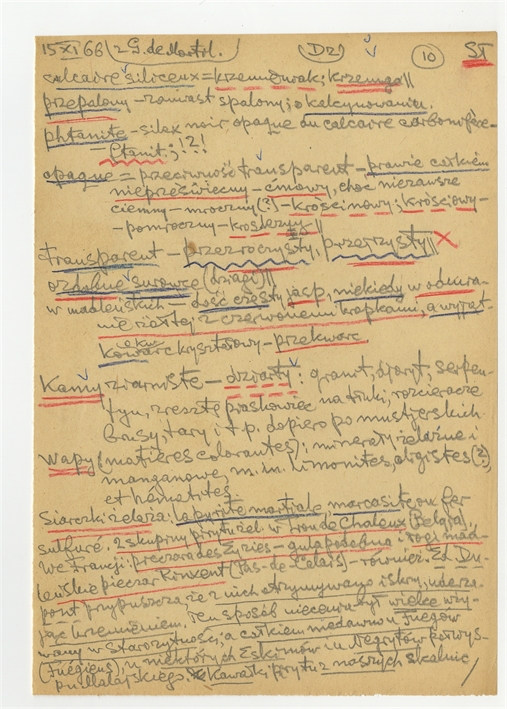 15 XI 66 (2 G. de Mortil.) (D2) 10 ST
calcaire siliceux = krzemieniak; krzemuga ||
przepalony – zamiast spalony; o kalcynowaniu.
phtanite – silex noir opaque du calcaire carbonifère –
– ftanit; !?!
opaque = przeciwność transparent – prawie całkiem
nieprzeświecny – ćmowy, choć niezawsze
ciemny – mroczny (?) – krościnowy; krościowy –
– pomroczny –
transparent – przezroczysty, przejrzysty ||
ozdobne surowce (dziągi) ||
w madleńskich – dość częsty jasp, niekiedy w odmia-
nie białej z czerwonemi kropkami, a wyjąt-
kowo kwarc kryształowy – przekwarc
Kamy ziarniste – dziarty: granit, djoryt, serpen-
tyn, zresztą piaskowiec na tłuki, rozcieracze
brusy, tary i t p. dopiero po mustjerskich
wapy (matières colorantes): minerały żelazne i
manganowe, m. in. limonites, oligistes (?)
et hématites
Siarczki żelaza: la pyrite martiale, marcasite ou fer
sulfuré. 2 skupiny pirytu żel. w Trou de Chaleux (Belgia),
We Francji: pieczara des Eyzies – gula podobna i tejż mad-
leńskie pieczar Rinxent (Pas-de-Calais) – również. Ed. Du-
pont przypuszcza że z nich otrzymywano iskry, uderza-
jąc krzemieniem, ten sposób niecenia był wielce wży-
wany w starożytności, a całkiem niedawno u Fuegów
(Fuégiens), u niektórych Eskimów i u Negrytów
Malajskiego. Kawałki pirytu z naszych skalnic /